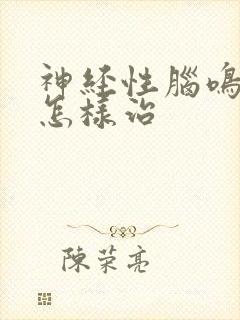 神经性腦鳴
怎樣治
陳荣亮